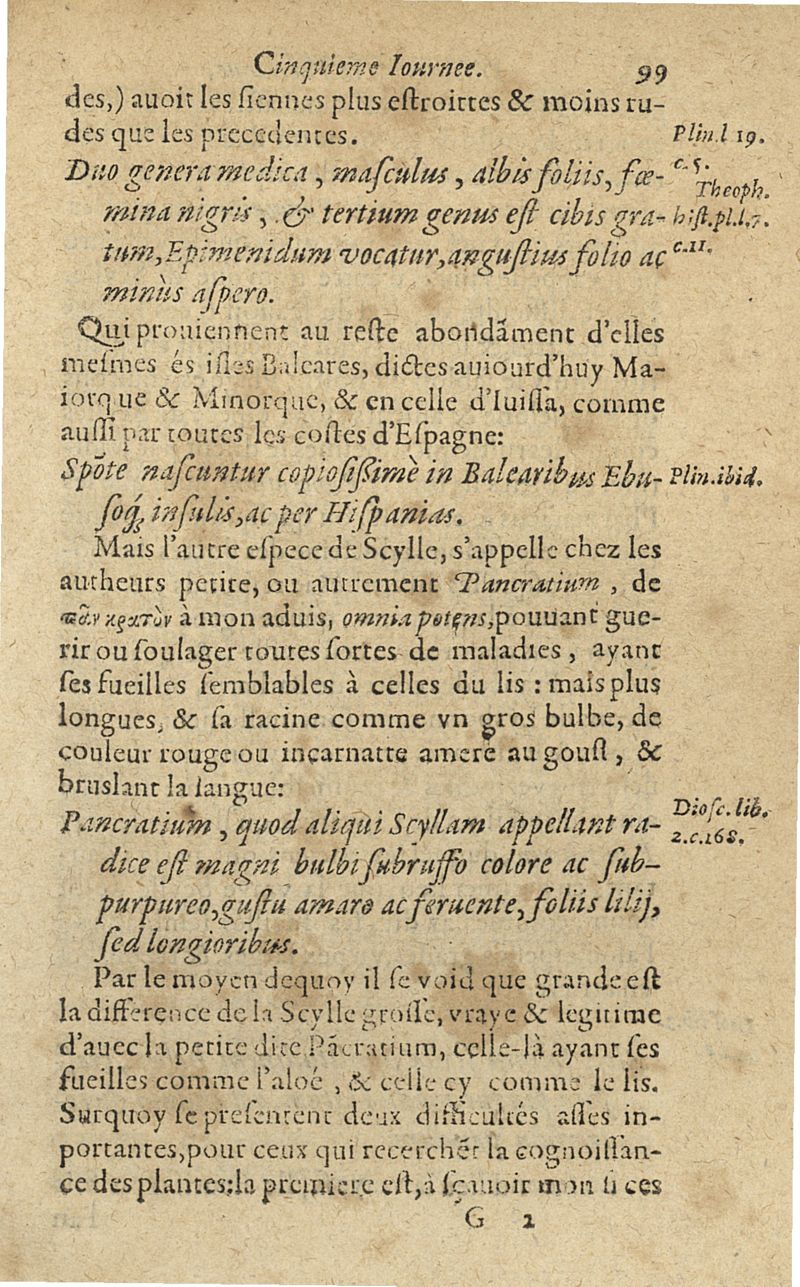 Cinquieme Iournee. 99
des,) auoit les siennes plus estroittes & moins ru-
des que les precedentes.
Plin. l 19. c. 5.
Duo genera medica, masculus, albis foliis, fœ-
Theoph. hist. pl. l. 7. c. 11.
mina nigris, & tertium genus est cibis gra-
tum, Epimenidum vocatur, angustius folio ac
minùs aspero.
Qui prouiennent au reste abondãment d'elles
mesmes és isles Baleares, dictes auiourd'huy Ma-
iorque & Minorque, & en celle d'Iuissa, comme
aussi par toutes les costes d'Espagne:
Spõte nascuntur copiosissimè in Balearibus Ebu-
Plin. ibid.
soq́; insulis, ac per Hispanias.
Mais l'autre espece de Scylle, s'appelle chez les
autheurs petite, ou autrement Pancratium, de
πᾶν κρατὸν à mon aduis, omnia potens, pouuant gue-
rir ou soulager toutes sortes de maladies, ayant
ses fueilles semblables à celles du lis : mais plus
longues, & sa racine comme vn gros bulbe, de
couleur rouge ou incarnatte amere au goust, &
bruslant la langue:
Diosc. lib. 2. c. 168.
Pancratium, quod aliqui Scyllam appellant ra-
dice est magni bulbi subruffo colore ac sub-
purpureo, gustu amaro ac feruente, foliis lilij,
sed longioribus.
Par le moyen dequoy il se void que grande est
la difference de la Scylle grosse, vraye & legitime
d'auec la petite dite Pãcratium, celle-là ayant ses
fueilles comme l'aloé, & celle cy comme le lis.
Surquoy se presentent deux difficultés asses in-
portantes, pour ceux qui recerchẽt la cognoissan-
ce des plantes: la premiere est, à sçauoir mon si ces
G 2